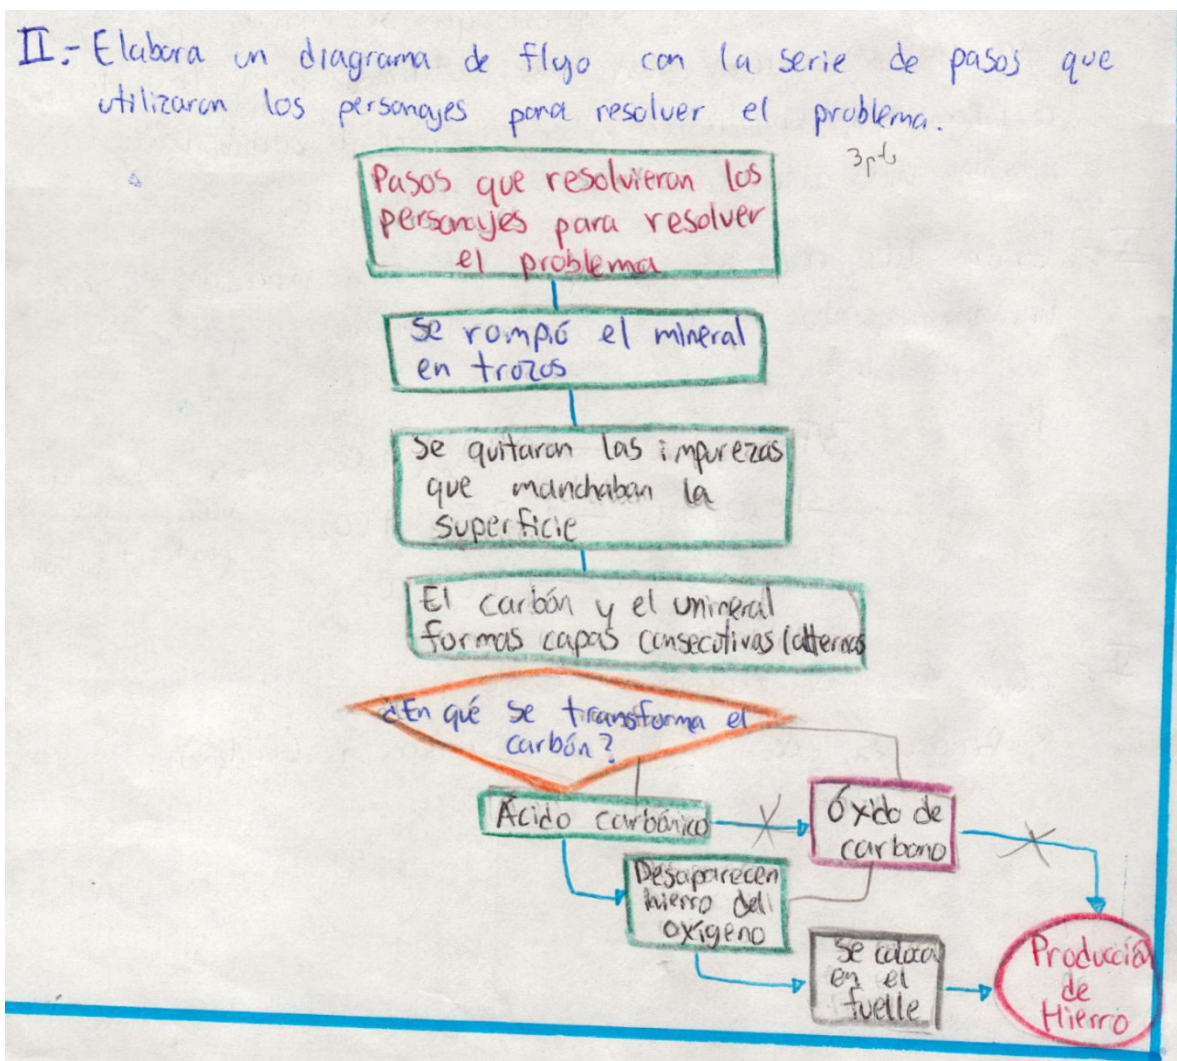 II.- Elabora un diagrama de flujo con la serie de pasos que
utilizaron los personajes para resolver el problema.
3pts
Pasos que resolvieron los
personajes para resolver
el problema
Se rompió el mineral
en trozos
Se quitaron las impurezas
que manchaban la
superficie
El carbón y el unineral
formas capas consecutivas (alternas
¿En qué se transforma el
carbón?
Ácido carbónico
Óxido de
carbono
Desaparecen
hierro del
oxígeno
Se coloca
en el
fuelle
Producción
de
Hierro